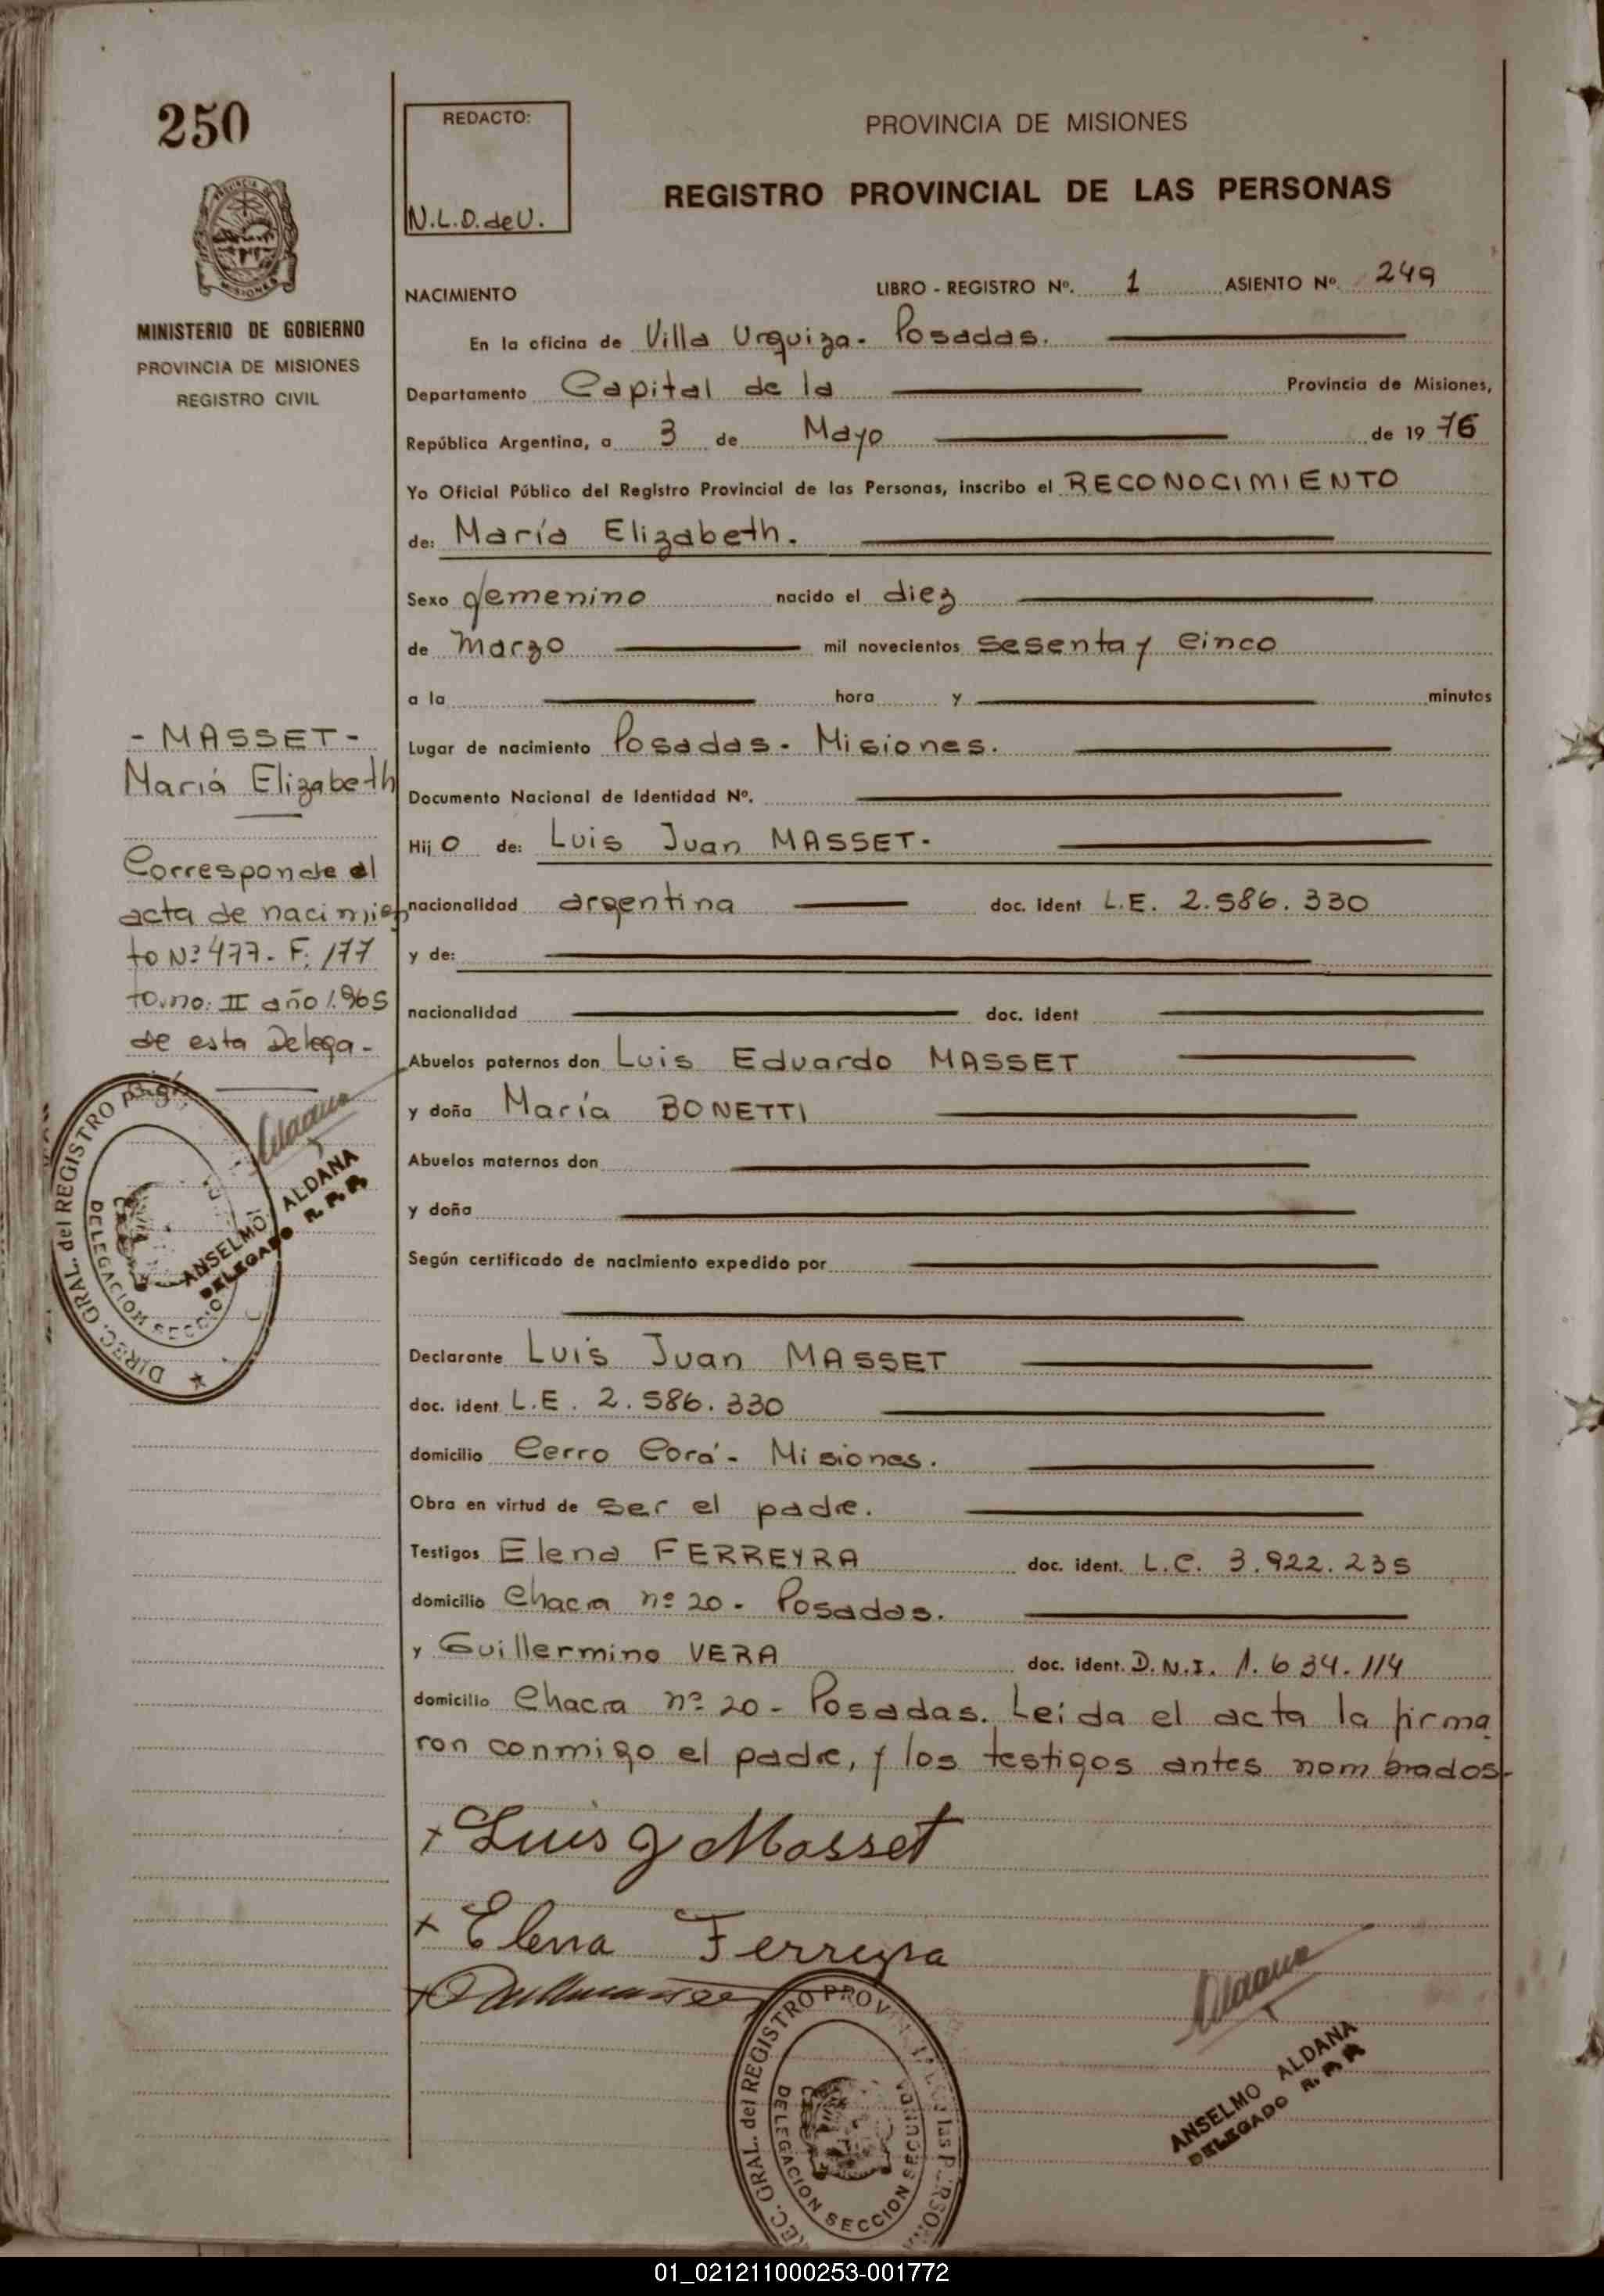 250
REDACTO:
N.L.D. de U.
PROVINCIA DE MISIONES
REGISTRO PROVINCIAL DE LAS PERSONAS
MINISTERIO DE GOBIERNO
PROVINCIA DE MISIONES
REGISTRO CIVIL
NACIMIENTO LIBRO - REGISTRO Nº. 1 ASIENTO Nº 249
En la oficina de Villa Urquiza. Posadas.
Departamento Capital de la Provincia de Misiones,
República Argentina, a 3 de Mayo de 19 76
Yo Oficial Público del Registro Provincial de las Personas, inscribo el RECONOCIMIENTO
de: María Elizabeth.
Sexo femenino nacido el diez
de Marzo mil novecientos sesenta y cinco
a la hora y minutos
Lugar de nacimiento Posadas - Misiones.
Documento Nacional de Identidad Nº.
Hij o de: Luis Juan MASSET -
nacionalidad argentina doc. ident L.E. 2.586.330
y de:
nacionalidad doc. ident
Abuelos paternos don Luis Eduardo MASSET
y doña María BONETTI
Abuelos maternos don
y doña
Según certificado de nacimiento expedido por
Declarante Luis Juan MASSET
doc. ident L.E. 2.586.330
domicilio Cerro Corá - Misiones.
Obra en virtud de ser el padre.
Testigos Elena FERREYRA doc. ident. L.C. 3.922.235
domicilio Chacra nº 20 - Posadas.
y Guillermino VERA doc. ident. D.N.I. 1.634.114
domicilio Chacra nº 20 - Posadas. Leída el acta la firma
ron conmigo el padre, y los testigos antes nombrados-
+ Luis J Masset
+ Elena Ferreyra
- MASSET -
Mariá Elizabeth
Corresponde al
acta de nacimien
to Nº 477. F. 177
tomo. II año 1.965
de esta Delega-
DIREC. GRAL. del REGISTRO
DELEGACION SECCIO
ANSELMO ALDANA
DELEGADO R. P. P.
REC. GRAL. del REGISTRO PROV las PERSON
DELEGACION SECCION
ANSELMO ALDANA
DELEGADO R. P. P.
01_021211000253-001772